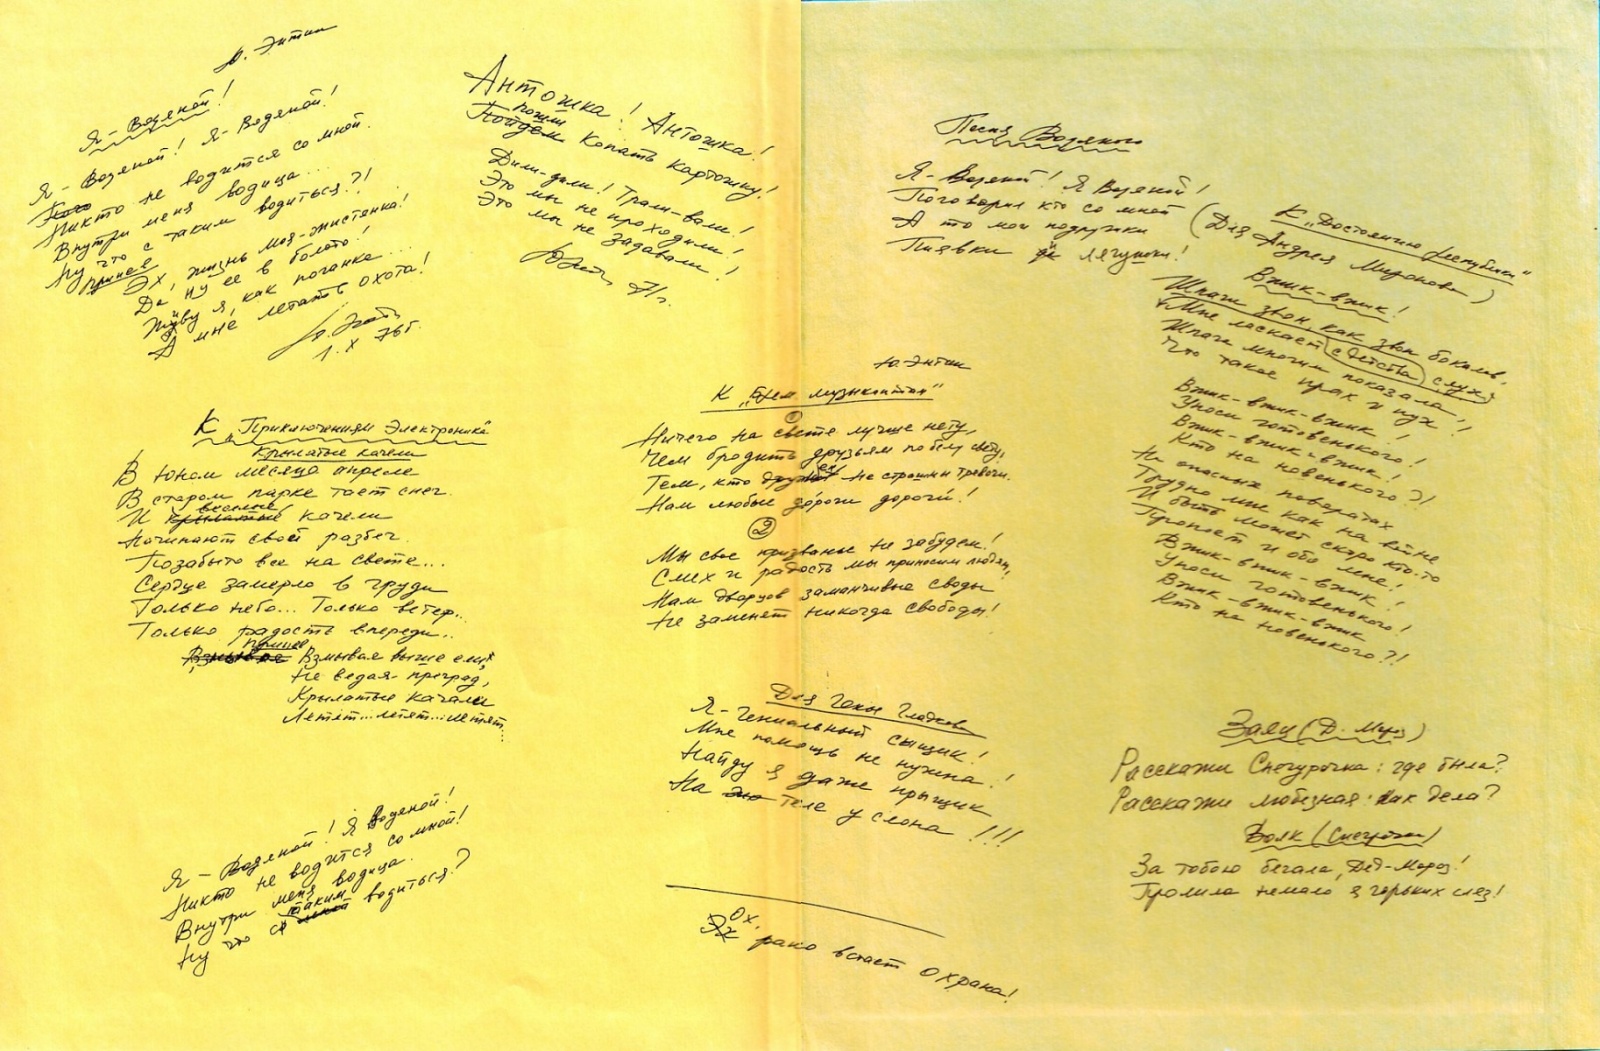 Ю. Энтин
Я - Водяной!
Я - Водяной! Я - Водяной!
Никто не водится со мной.
Внутри меня водица...
Ну что с таким водиться?!
припев
Эх, жизнь моя - жистянка!
Да ну её в болото!
Живу я, как поганка...
А мне летать охота!
Ю. Энтин
1. X 76г.
Антошка! Антошка!
пошли
Пойдём копать картошку!
Дили-дили! Трали-вали!
Это мы не проходили!
Это мы не задавали!
Юэнтин 71г.
К „Приключениям Электроника"
Крылатые качели
В юном месяце апреле
В старом парке тает снег.
веселые
И крылатые качели
Начинают свой разбег.
Позабыто все на свете...
Сердце замерло в груди
Только небо... Только ветер..
Только радость впереди..
припев
Взмывая Взмывая выше ели,
Не ведая преград,
Крылатые качели
Летят... летят... летят
Я - Водяной! Я Водяной!
Никто не водится со мной!
Внутри меня водица.
таким
Ну что с мной водиться?
Ю Энтин
К „Брем музыкантам"
①
Ничего на свете лучше нету,
Чем бродить друзьям по белу свету,
Тем, кто дружен не страшны тревоги.
Нам любые дороги дороги!
②
Мы свое призванье не забудем!
Смех и радость мы приносим людям,
Нам дворцов заманчивые своды
Не заменят никогда свободы!
Для Гены Гладкова
Я - гениальный сыщик!
Мне помощь не нужна!
Найду я даже прыщик
На теле у слона!!!
Ох,
Эх рано встает охрана!
Песня Водяного
Я - Водяной! Я Водяной!
Поговорил кто со мной
А то мои подружки
Пиявки да лягушки!
К „Достоянию республики"
(Для Андрея Миронова)
Вжик-вжик!
Шпаги звон, как звон бокала,
Мне ласкает с детства слух,
Шпага многим показала
Что такое прах и пух!
Вжик-вжик-вжик!
Уноси готовенького!
Вжик-вжик-вжик!
Кто на новенького?!
На опасных поворотах
Трудно мне как на войне
И быть может скоро кто-то
Пропоет и обо мне!
Вжик-вжик-вжик!
Уноси готовенького!
Вжик-вжик-вжик
Кто на новенького?!
Заяц (Д. Мороз)
Расскажи Снегурочка: где была?
Расскажи любезная: как дела?
Волк (Снегурочка)
За тобою бегала, Дед-Мороз!
Пролила немало я горьких слез!